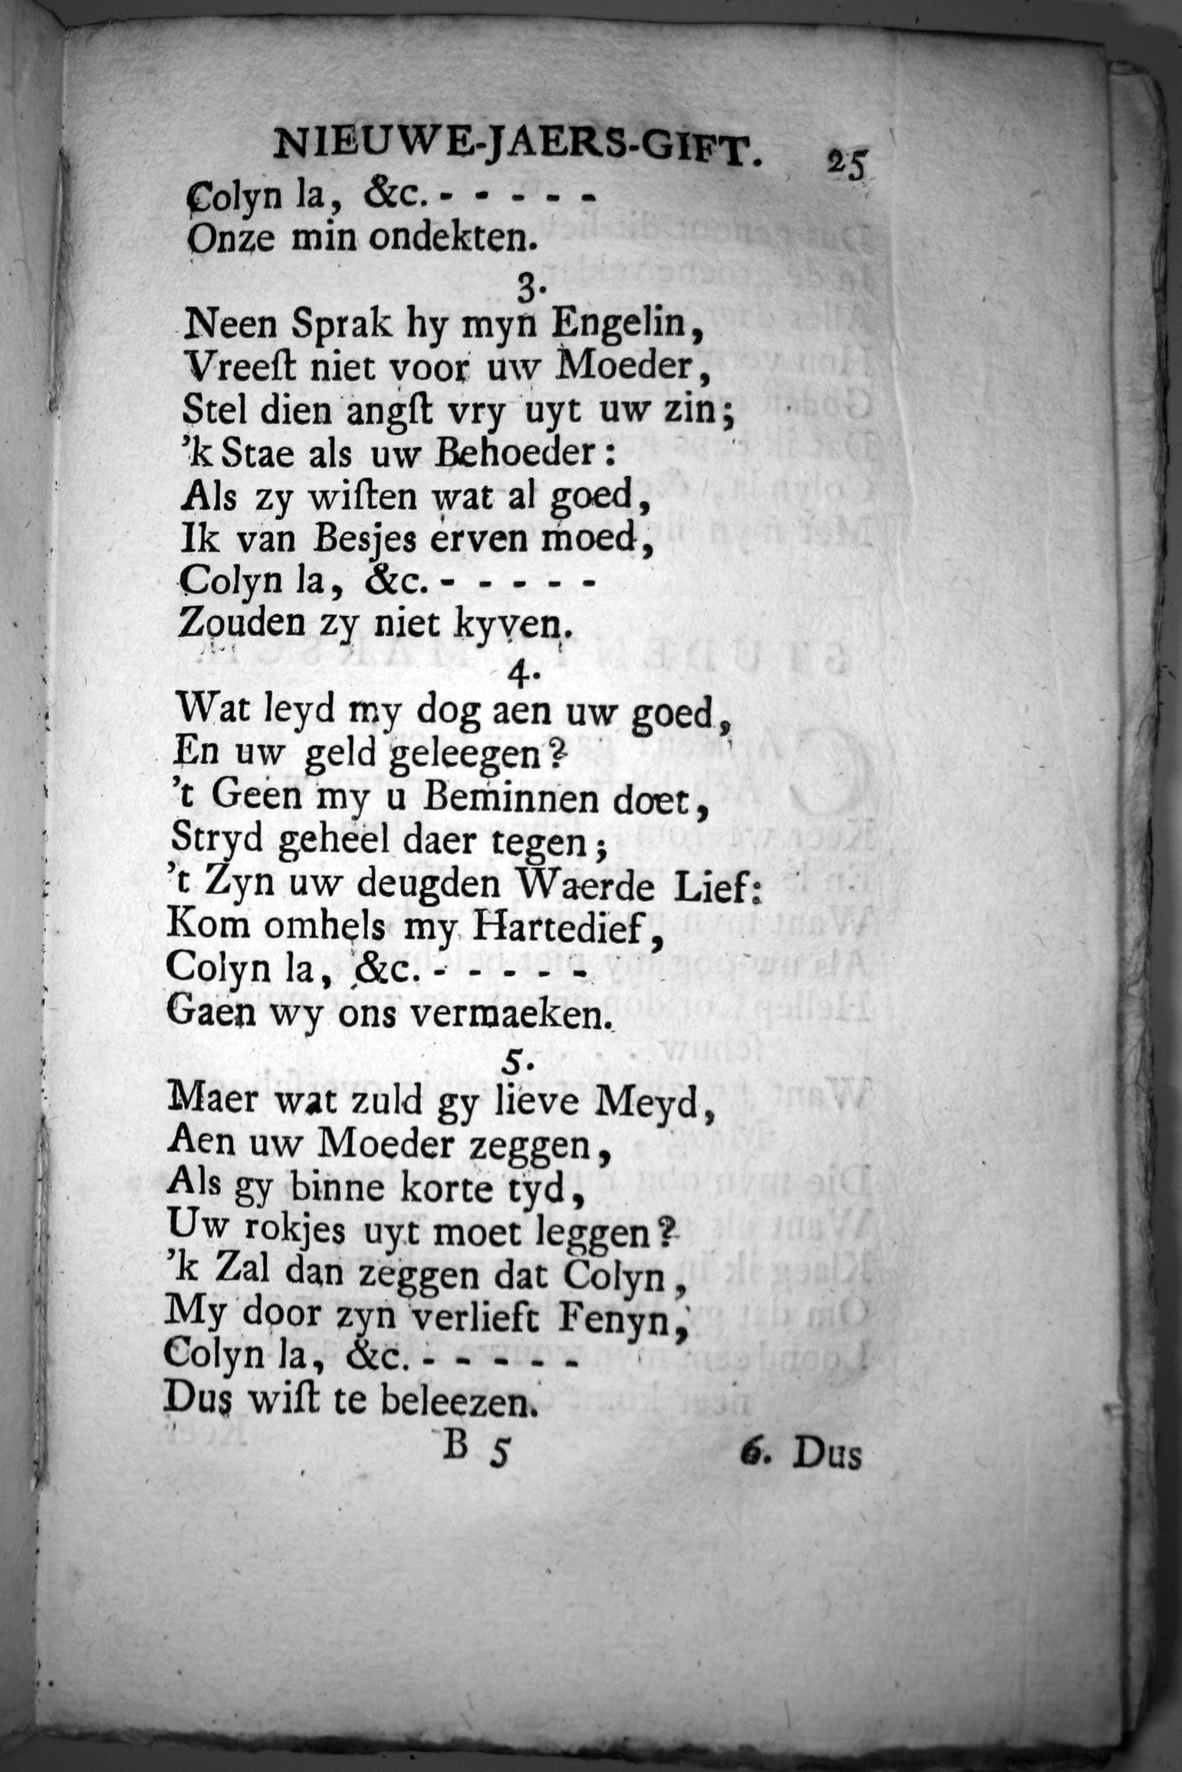 NIEUWE-JAERS-GIFT. 25
Colyn la, &c. - - - - -
Onze min ondekten.
3.
Neen Sprak hy myn Engelin,
Vreeſt niet voor uw Moeder,
Stel dien angſt vry uyt uw zin;
’k Stae als uw Behoeder:
Als zy wiſten wat al goed,
Ik van Besjes erven moed,
Colyn la, &c. - - - - -
Zouden zy niet kyven.
4.
Wat leyd my dog aen uw goed,
En uw geld geleegen?
’t Geen my u Beminnen doet,
Stryd geheel daer tegen;
’t Zyn uw deugden Waerde Lief:
Kom omhels my Hartedief,
Colyn la, &c. - - - - -
Gaen wy ons vermaeken.
5.
Maer wat zuld gy lieve Meyd,
Aen uw Moeder zeggen,
Als gy binne korte tyd,
Uw rokjes uyt moet leggen?
’k Zal dan zeggen dat Colyn,
My door zyn verlieft Fenyn,
Colyn la, &c. - - - - -
Dus wiſt te beleezen.
B 5 6. Dus